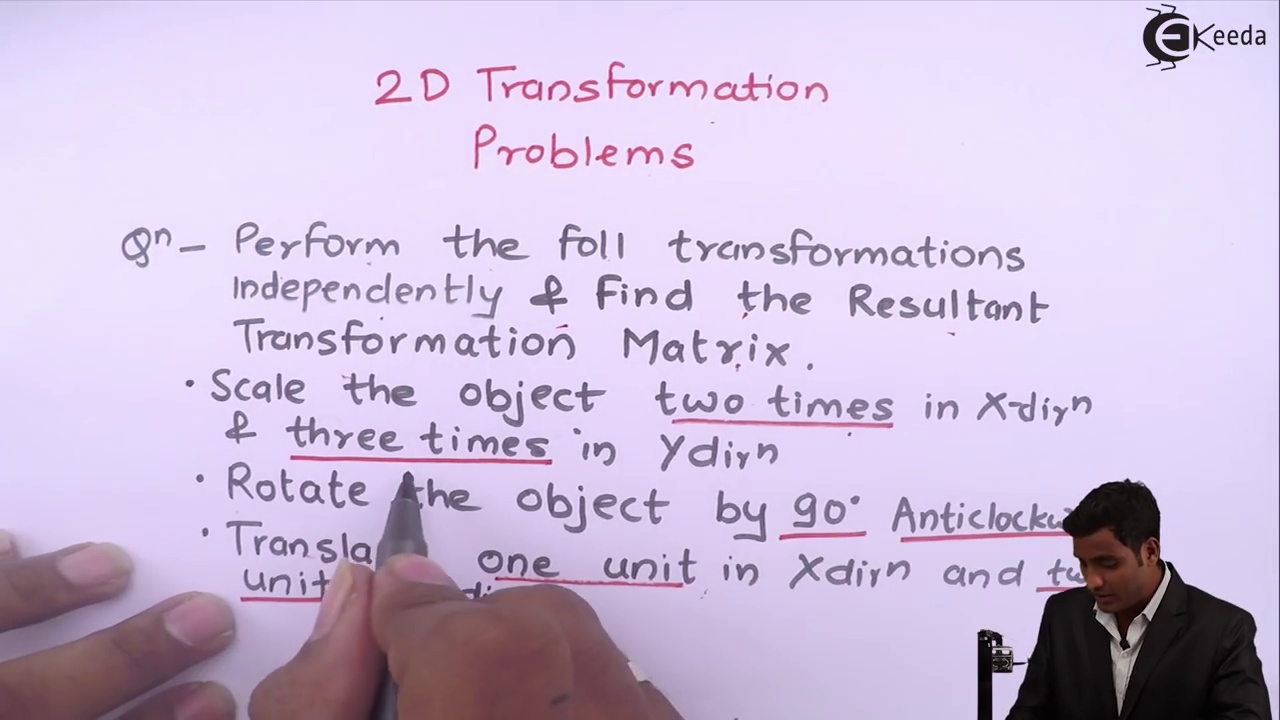 EKeeda
2D Transformation
Problems
Qn - Perform the foll transformations
Independently & Find the Resultant
Transformation Matrix.
• Scale the object two times in X-dirn
& three times in Ydirn
• Rotate the object by 90° Anticlockwi
• Transla one unit in Xdirn and tw
unit di